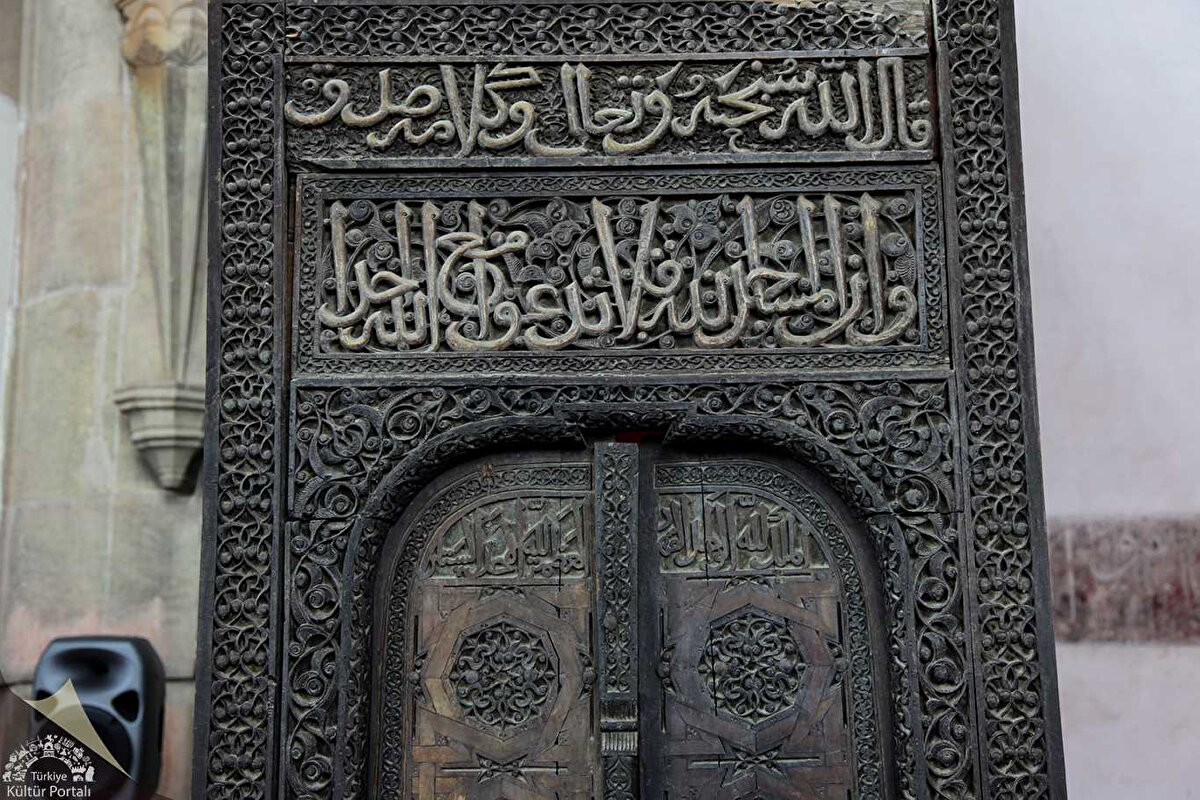 قال الله سبحنه وتعالى وكلامه صدق
وان المسجد لله فلا تدعوا مع الله احدا
Türkiye
Kültür Portalı